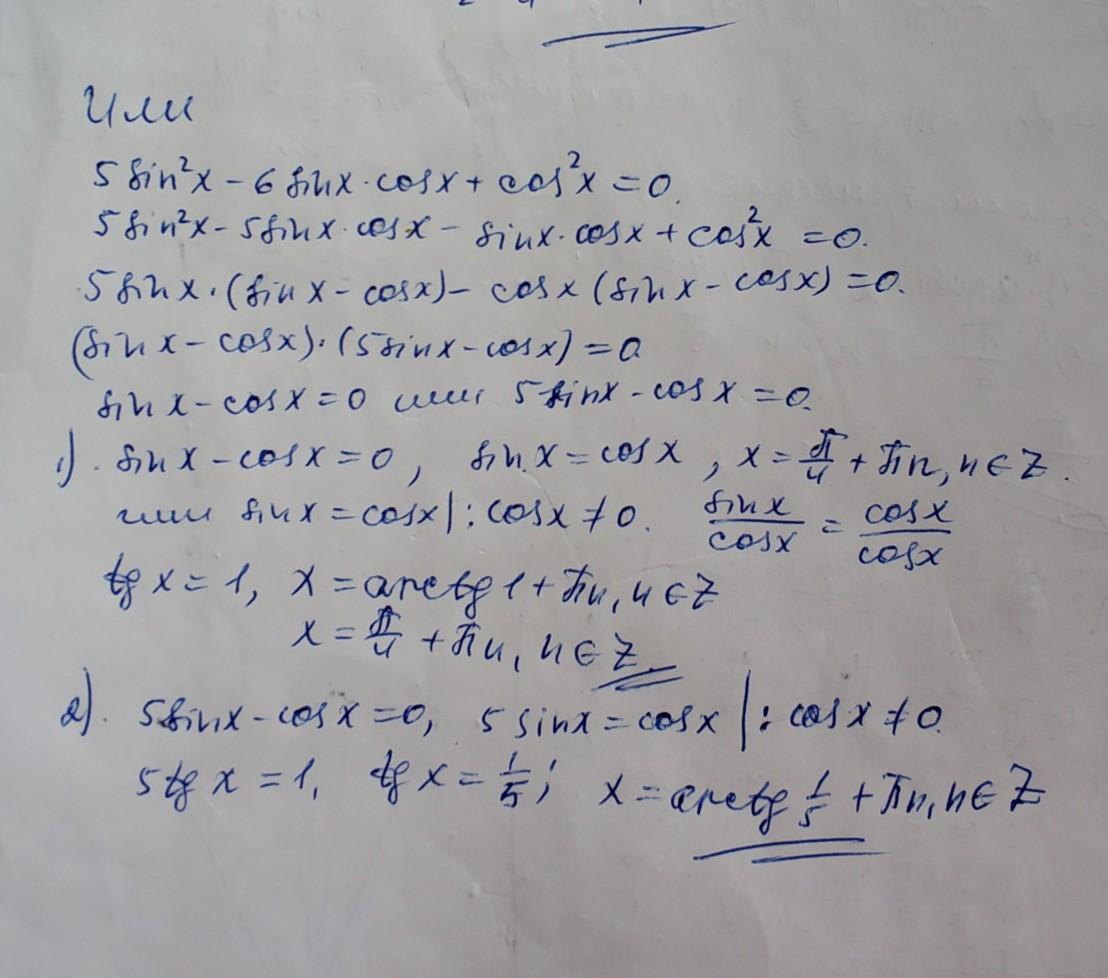 Или
5 sin²x - 6 sinx · cosx + cos²x = 0.
5 sin²x - 5 sinx · cosx - sinx · cosx + cos²x = 0.
5 sinx · (sinx - cosx) - cosx (sinx - cosx) = 0.
(sinx - cosx) · (5 sinx - cosx) = 0
sinx - cosx = 0 или 5 sinx - cosx = 0.
1). sinx - cosx = 0, sinx = cosx, x = π/4 + πn, n ∈ Z.
или sinx = cosx | : cosx ≠ 0. sinx/cosx = cosx/cosx
tg x = 1, x = arctg 1 + πn, n ∈ Z
x = π/4 + πn, n ∈ Z.
2). 5 sinx - cosx = 0, 5 sinx = cosx | : cosx ≠ 0
5 tg x = 1, tg x = 1/5; x = arctg 1/5 + πn, n ∈ Z